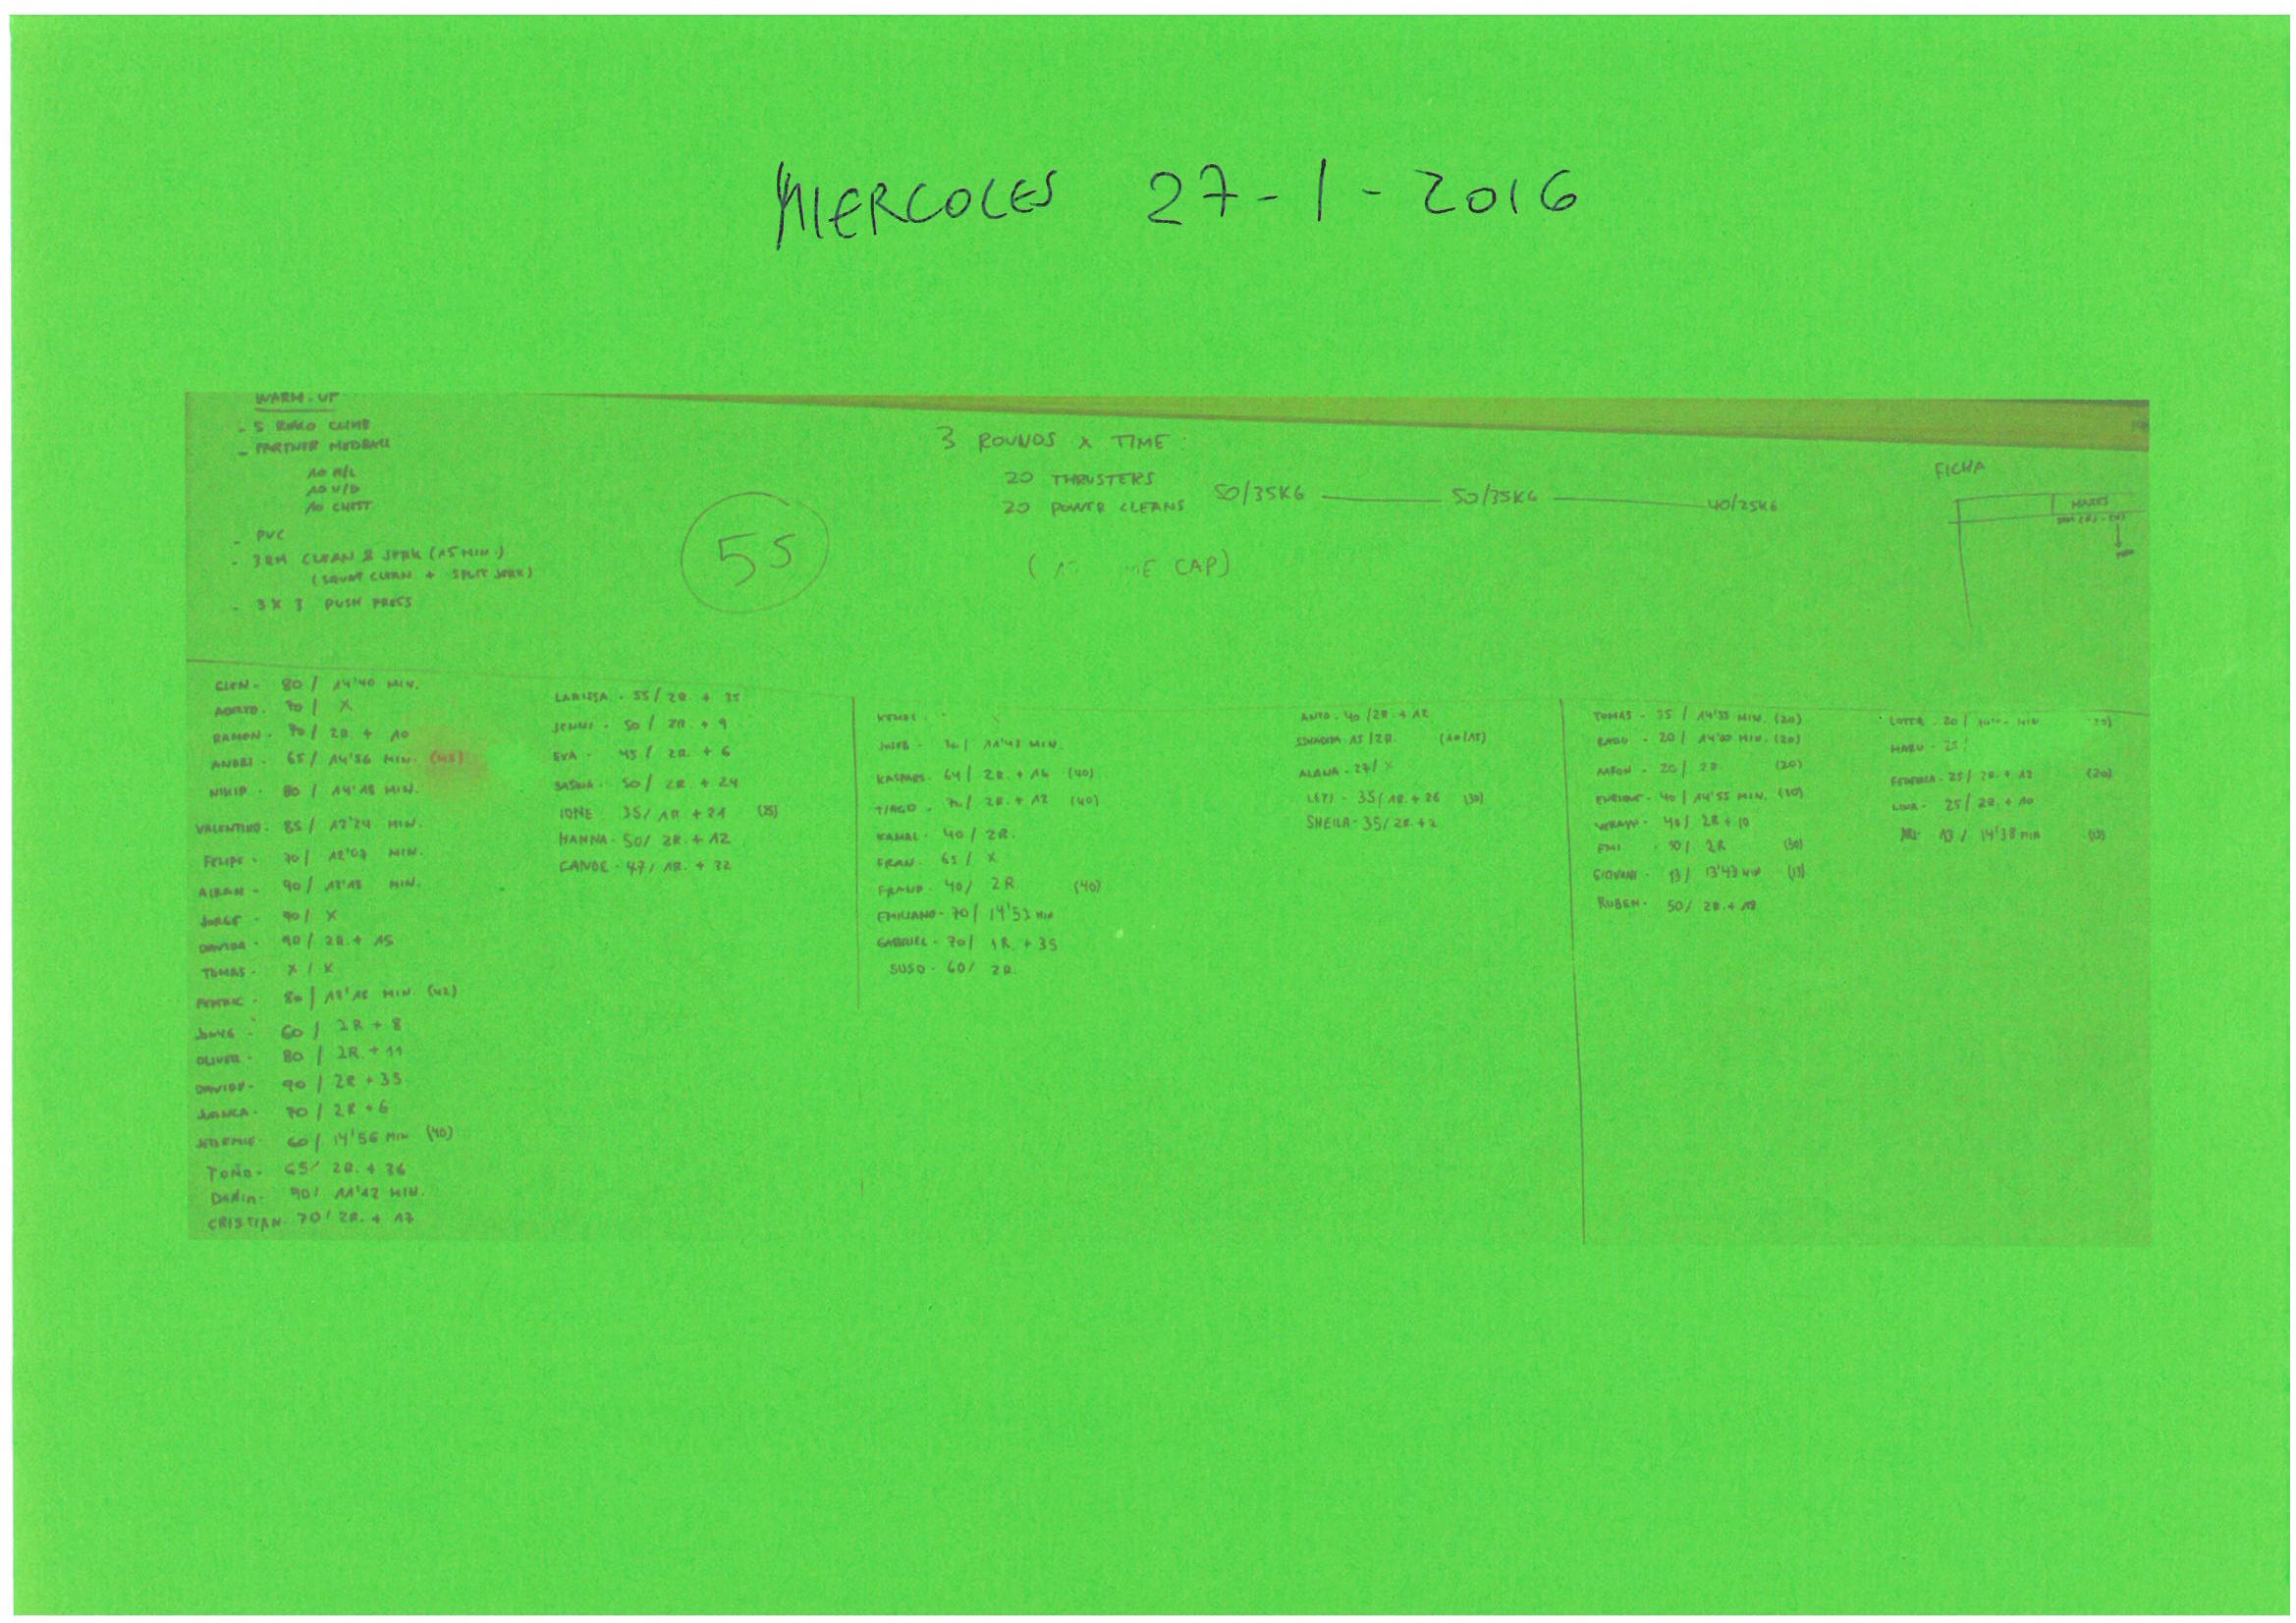 MIERCOLES 27-1-2016
WARM-UP
- 5 CLIMB
- PARTNER MEDBALL
10 R/L
10 U/D
10 CHEST
- PVC
- 3RM CLEAN & JERK (15 MIN.)
(SQUAT CLEAN + SPLIT JERK)
- 3 X 3 PUSH PRESS
55
3 ROUNDS X TIME:
20 THRUSTERS
20 POWER CLEANS
50/35KG 50/35KG 40/25KG
( ME CAP)
FICHA
MAXES
GLEN- 80 / 14'40 MIN.
70 / X
RAMON- 70 / 2R. + 10
ANDRI- 65 / 14'56 MIN.
80 / 14'18 MIN.
VALENTINO- 85 / 12'24 MIN.
FELIPE- 70 / 12'07 MIN.
ALBAN- 90 / MIN.
JORGE- 90 / X
90 / 2R. + 15
TOMAS- X / X
80 / MIN. (42)
60 / 2R + 8
OLIVER- 80 / 2R. + 11
90 / 2R + 35
JUANCA- 70 / 2R + 6
JEREMIE- 60 / 14'56 MIN (40)
TOÑO- 65 / 2R. + 36
90 / 11'12 MIN.
CRISTIAN 70 / 2R. + 17
LARISSA- 55 / 2R. + 35
JENNI- 50 / 2R. + 9
EVA- 45 / 2R. + 6
SASHA- 50 / 2R + 24
IONE 35 / 1R + 21 (25)
HANNA- 50 / 2R. + 12
CANDE- 47 / 1R. + 32
11'43 MIN.
KASPARS- 64 / 2R. + 16 (40)
TIAGO- 70 / 2R. + 12 (40)
KAMAL- 40 / 2R.
FRAN- 65 / X
40 / 2R. (40)
EMILIANO- 70 / 14'53 MIN
GABRIEL- 70 / 1R. + 35
SUSO- 60 / 2R.
ANTO- 40 / 2R. + 12
15 / 2R. (10/15)
ALANA- 27 / X
LETI- 35 / 1R. + 26 (30)
SHEILA- 35 / 2R. + 2
TOMAS- 35 / 14'55 MIN. (20)
20 / MIN. (20)
20 / 2R (20)
ENRIQUE- 40 / 14'55 MIN. (30)
40 / 2R + 10
2R (30)
GIOVANI- 13 / 13'43 MIN (13)
RUBEN- 50 / 2R. + 18
LOTTA- 20 / MIN (20)
MARU- 25 /
FEDERICA- 25 / 2R. + 12 (20)
LINA- 25 / 2R. + 10
13 / 14'38 MIN (13)